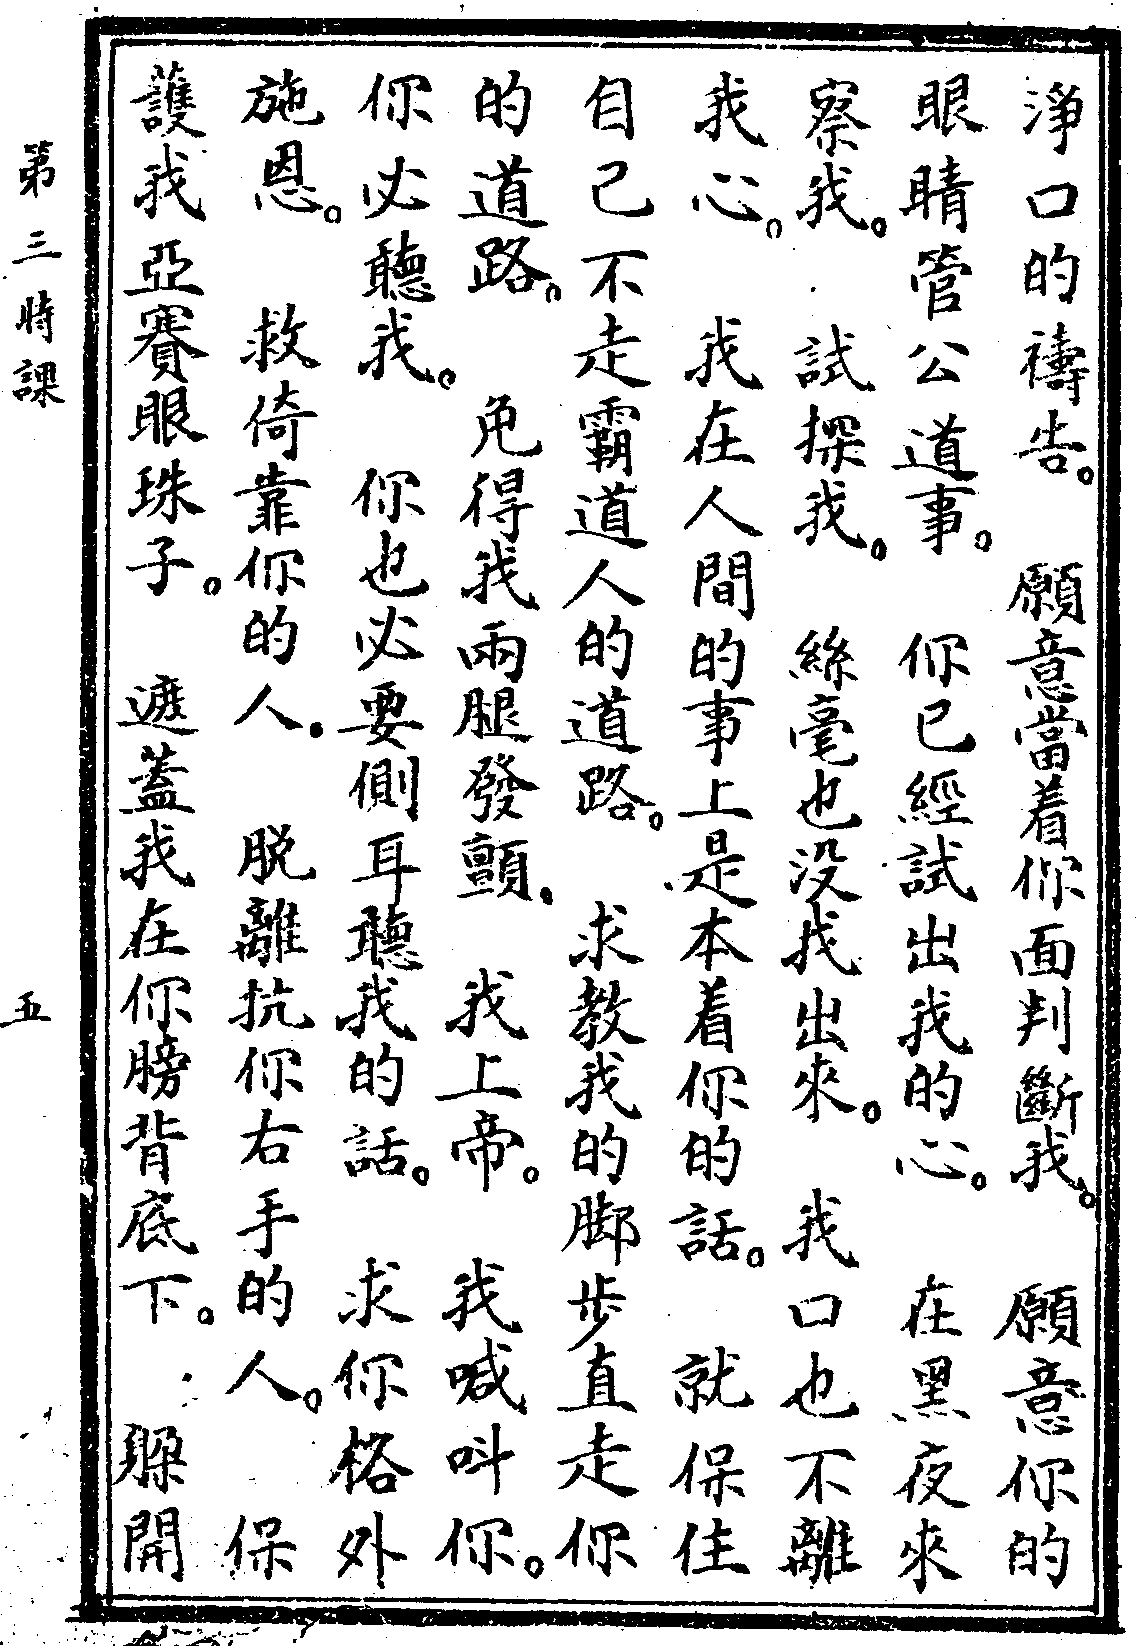 淨口的禱告。　願意當着你面判斷我。　願意你的
眼睛管公道事。　你已經試出我的心。　在黑夜來
察我。　試探我。　絲毫也没找出來。　我口也不離
我心。　我在人間的事上是本着你的話。　就保住
自己不走霸道人的道路。　求教我的脚步直走你
的道路。　免得我兩腿發顫。　我上帝。　我喊呌你。
你必聽我。　你也必要側耳聽我的話。　求你格外
施恩。　救倚靠你的人。　脱離抗你右手的人。　保
護我亞賽眼珠子。　遮蓋我在你膀背底下。　躲開
第三時課
五